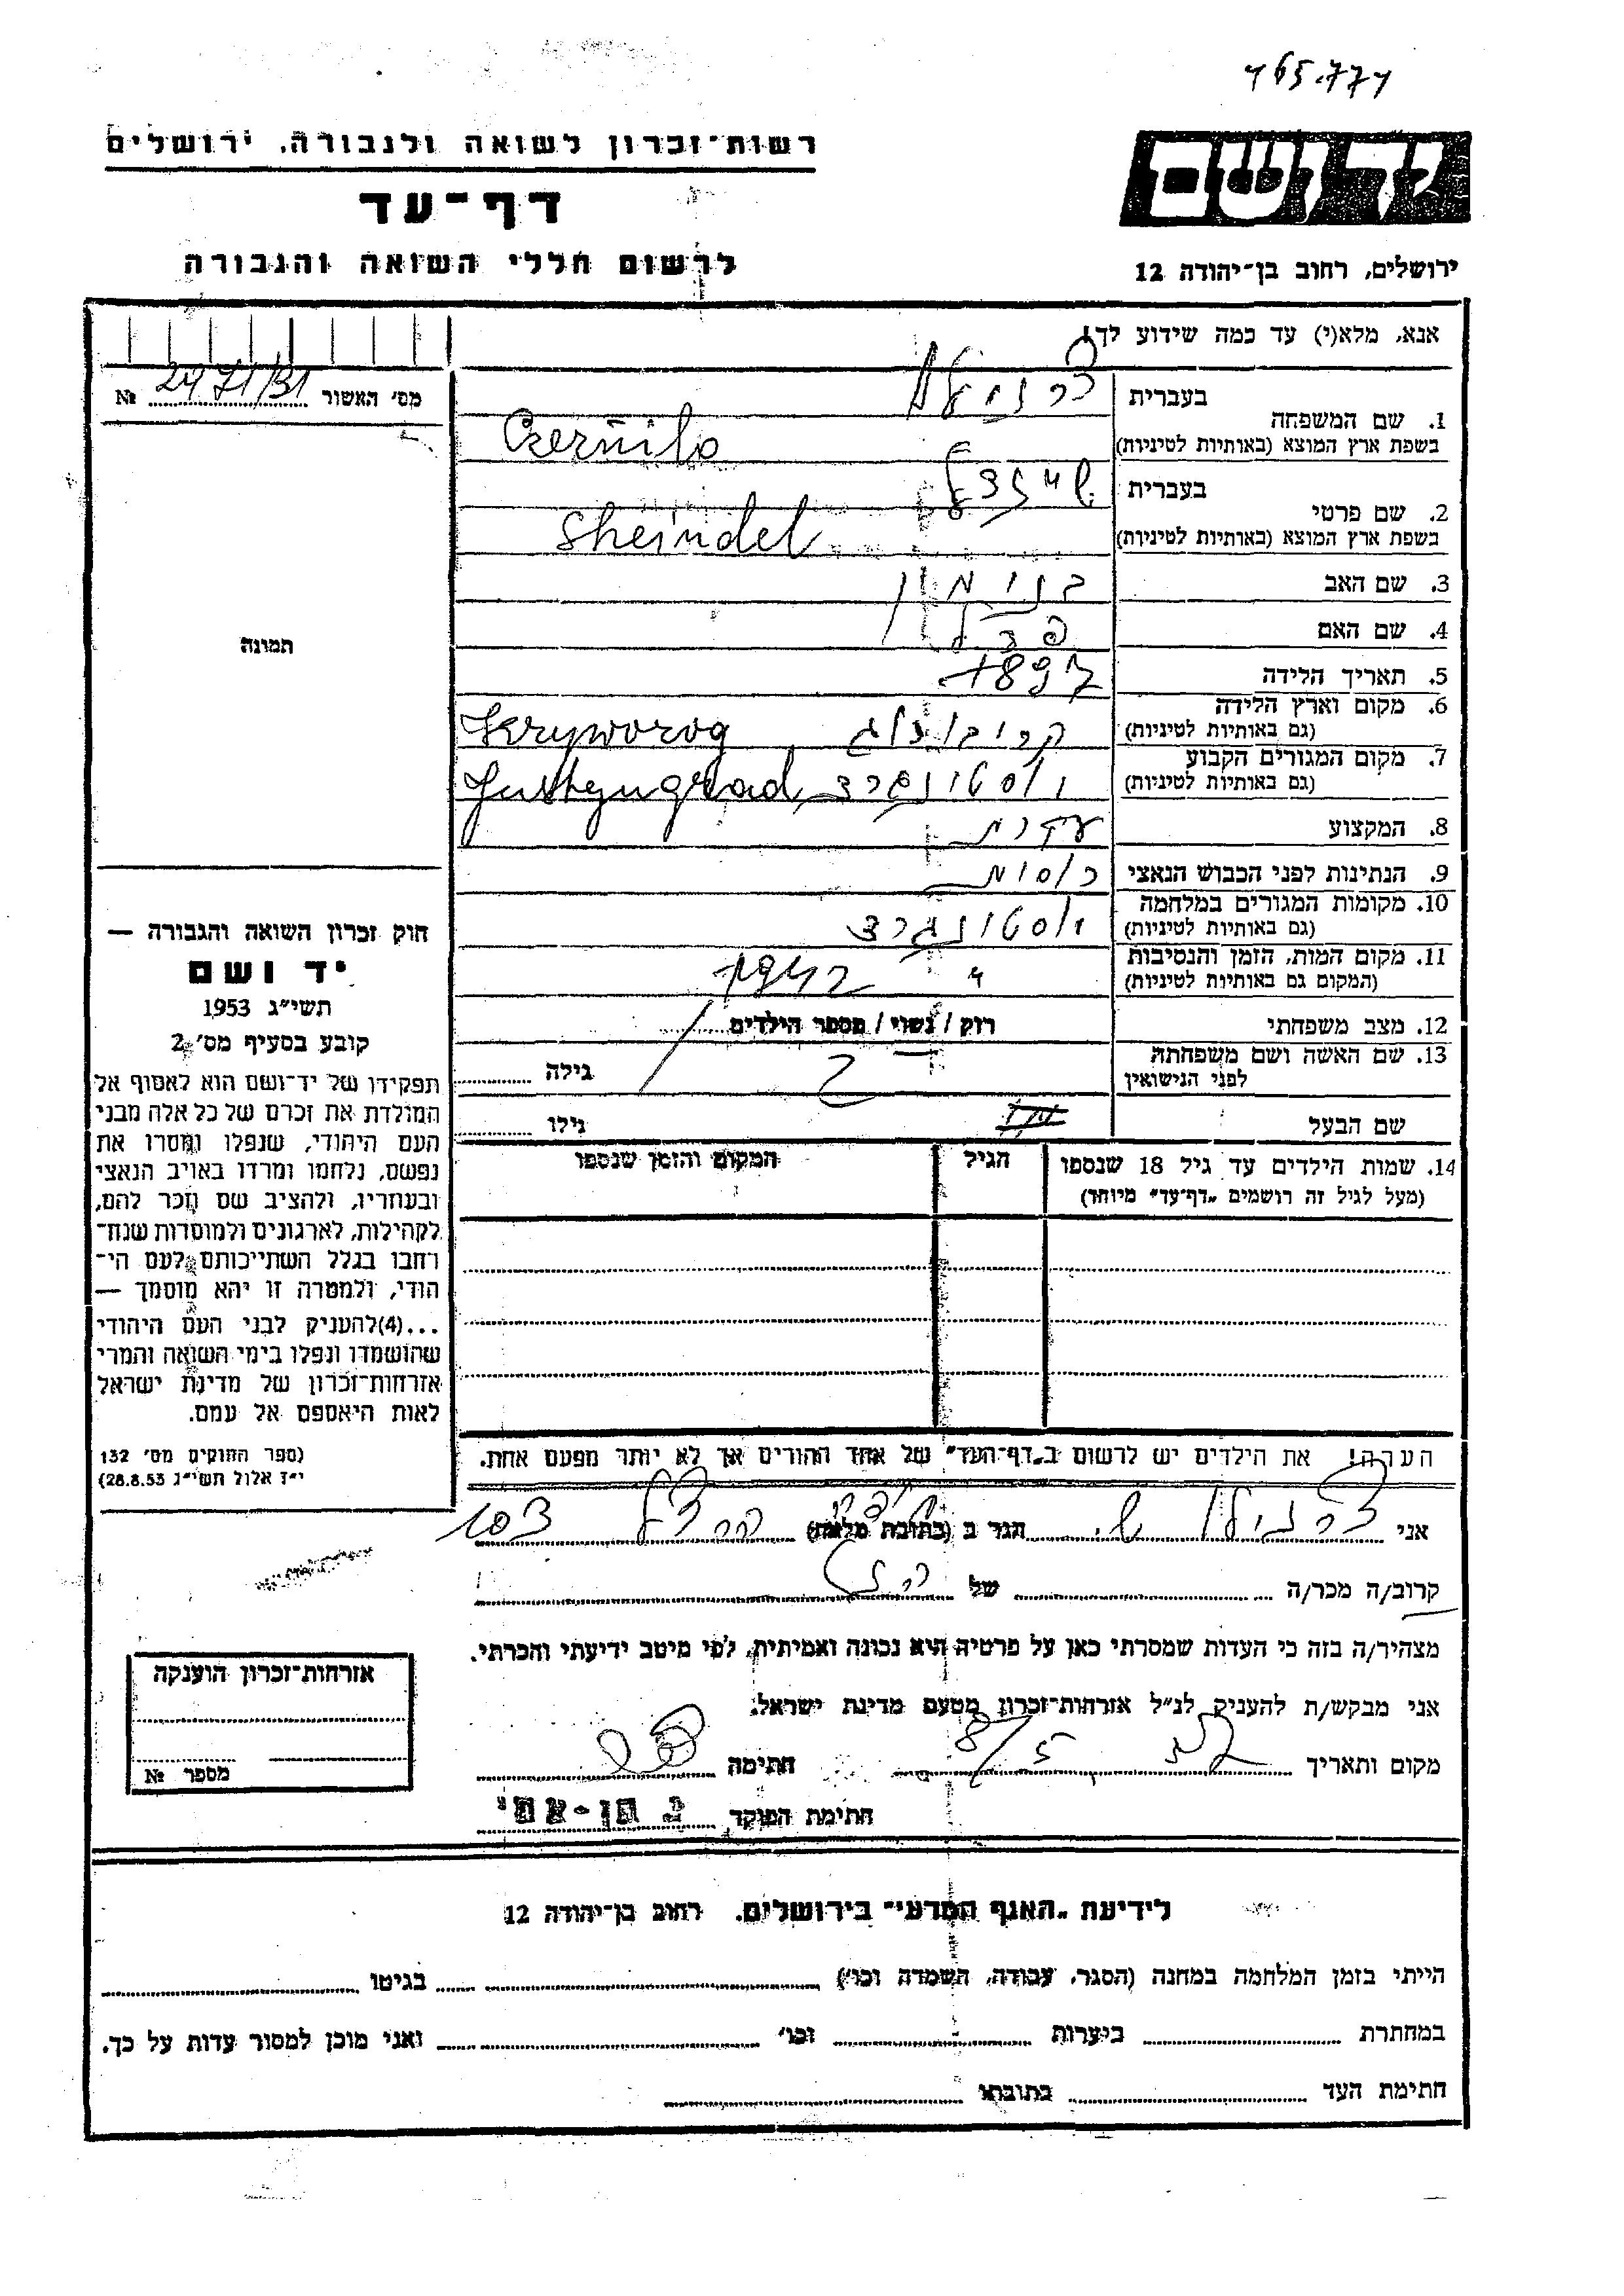 465.774
רשות־זכרון לשואה ולגבורה, ירושלים
דף־עד
לרשום חללי השואה והגבורה
יד ושם
ירושלים, רחוב בן־יהודה 12
אנא, מלא(י) עד כמה שידוע לך!
מס׳ האשור № 2471/31
1. שם המשפחה
בעברית
בשפת ארץ המוצא (באותיות לטיניות) Czernilo
2. שם פרטי
בעברית שיינדל
בשפת ארץ המוצא (באותיות לטיניות) Sheindel
3. שם האב בנימין
4. שם האם פרל
5. תאריך הלידה 1897
6. מקום וארץ הלידה
(גם באותיות לטיניות) Krzyworog
7. מקום המגורים הקבוע
(גם באותיות לטיניות) יוסטינגרד Justyngrad
8. המקצוע עקרת
9. הנתינות לפני הכבוש הנאצי רוסית
10. מקומות המגורים במלחמה
(גם באותיות לטיניות) יוסטינגרד
11. מקום המות, הזמן והנסיבות
(המקום גם באותיות לטיניות) " 1942
12. מצב משפחתי רוק / נשוי / מספר הילדים
13. שם האשה ושם משפחתה
לפני הנישואין
גילה
שם הבעל
גילו
14. שמות הילדים עד גיל 18 שנספו
(מעל לגיל זה רושמים „דף־עד" מיוחד)
הגיל
המקום והזמן שנספו
הערה! את הילדים יש לרשום ב„דף־העד" של אחד ההורים אך לא יותר מפעם אחת.
תמונה
חוק זכרון השואה והגבורה —
יד ושם
תשי״ג 1953
קובע בסעיף מס׳ 2
תפקידו של יד־ושם הוא לאסוף אל
המולדת את זכרם של כל אלה מבני
העם היהודי, שנפלו ומסרו את
נפשם, נלחמו ומרדו באויב הנאצי
ובעוזריו, ולהציב שם וזכר להם,
לקהילות, לארגונים ולמוסדות שנח־
רבו בגלל השתייכותם לעם הי־
הודי, ולמטרה זו יהא מוסמך —
...(4)להעניק לבני העם היהודי
שהושמדו ונפלו בימי השואה והמרי
אזרחות־זכרון של מדינת ישראל
לאות היאספם אל עמם.
(ספר החוקים מס׳ 132
י״ז אלול תשי״ג 28.8.53)
אני הגר ב (כתובת מלאה)
קרוב/ה מכר/ה של
מצהיר/ה בזה כי העדות שמסרתי כאן על פרטיה היא נכונה ואמיתית, לפי מיטב ידיעתי והכרתי.
אני מבקש/ת להעניק לנ״ל אזרחות־זכרון מטעם מדינת ישראל.
מקום ותאריך חתימה
חתימת הפוקד
אזרחות־זכרון הוענקה
מספר №
לידיעת „האגף המדעי" בירושלים. רחוב בן־יהודה 12
הייתי בזמן המלחמה במחנה (הסגר, עבודה, השמדה וכו׳) בגיטו
במחתרת ביערות וכו׳ ואני מוכן למסור עדות על כך.
חתימת העד כתובתו